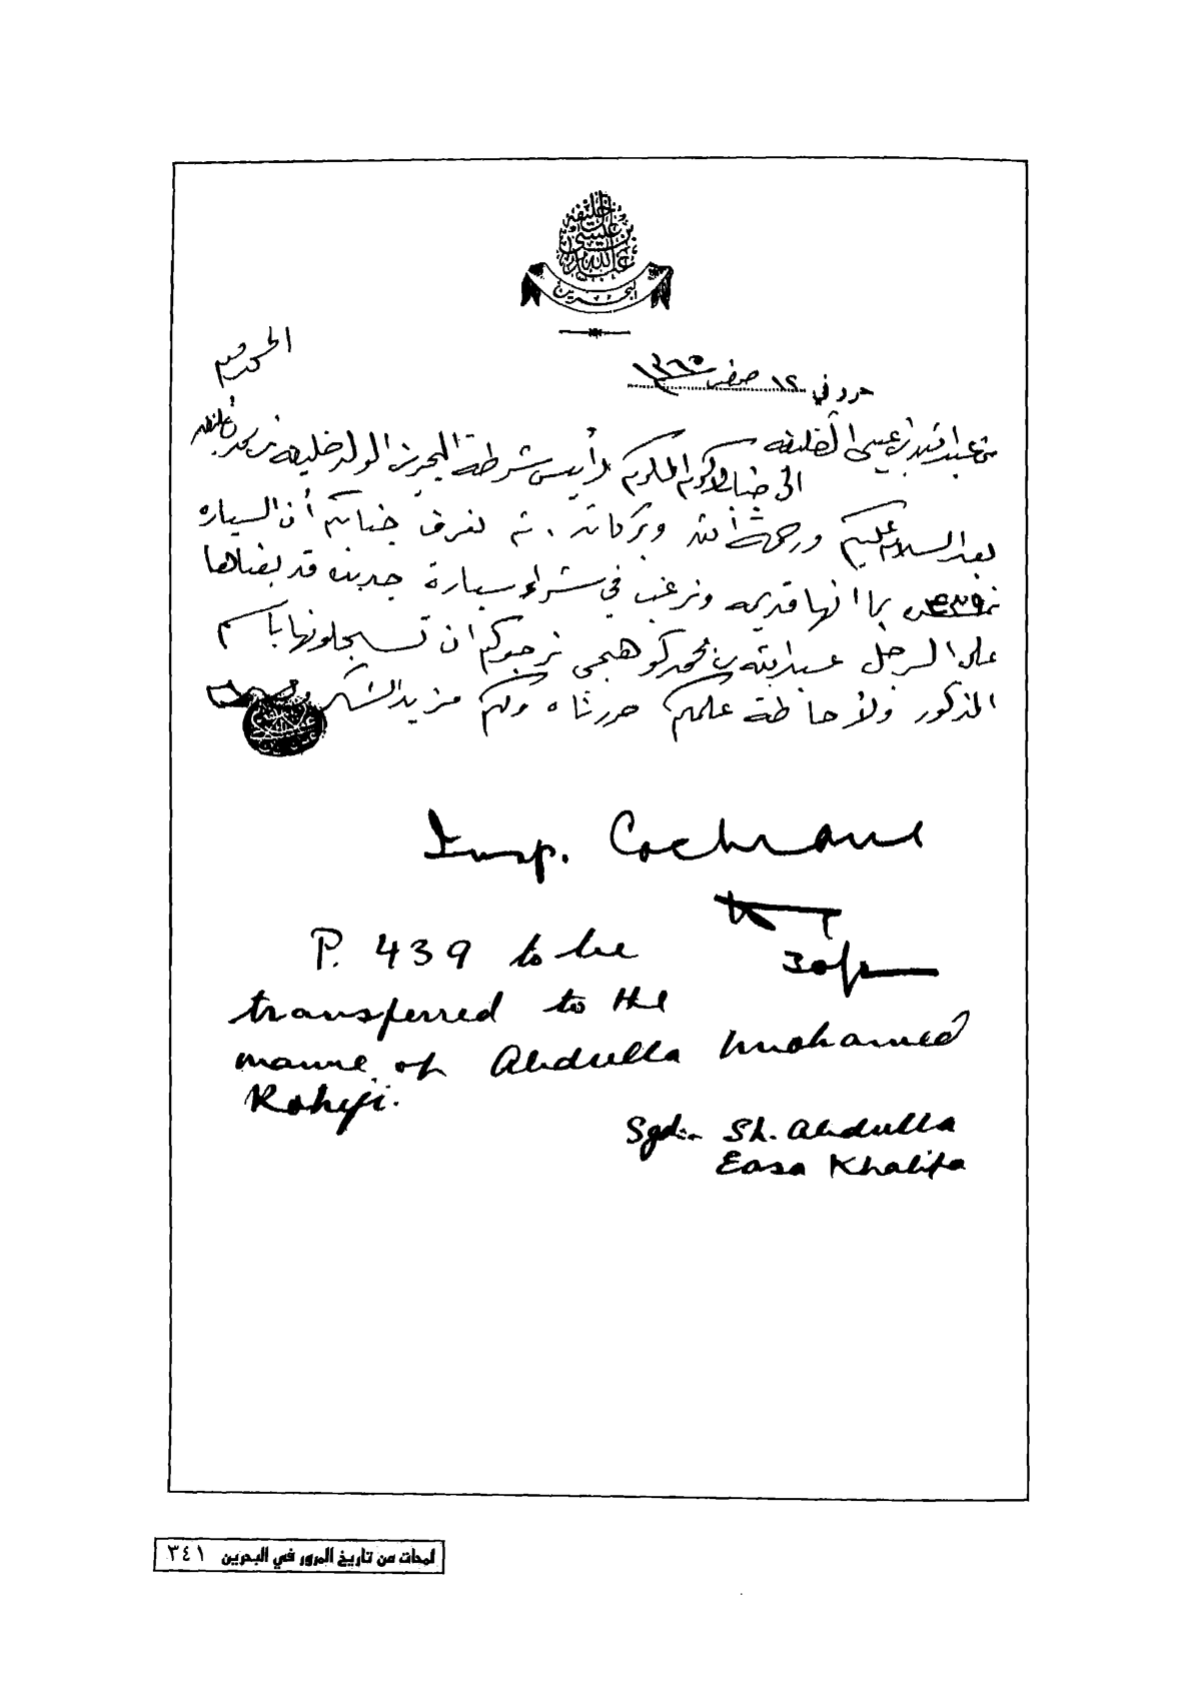 عبد الله بن عيسى الخليفه
البحرين
حرر في ١٢ صفر ١٣٦٥
المحترم
من عبد الله بن عيسى الخليفه
الى جناب الاكرم المكرم رأيس شرطة البحرين الولد خليفه بن محمد الخليفه
بعد السلام عليكم ورحمة الله وبركاته . ثم نعرف جنابكم أن السياره
نمرة ٤٣٩ بما انها قديمه ونرغب في شراء سيارة جديده قد بعناها
على الرجل عبد الله بن محمد كوهجي نرجوكم ان تسجلونها باسم
المذكور ولأحاطة علمكم حررناه ولكم مزيد الشكر
Insp. Cochrane
30/1
P. 439 to be
transferred to the
name of Abdulla Mohamed
Koheji.
Sgd:- Sh. Abdulla
Easa Khalifa
لمحات من تاريخ المرور في البحرين ٣٤١